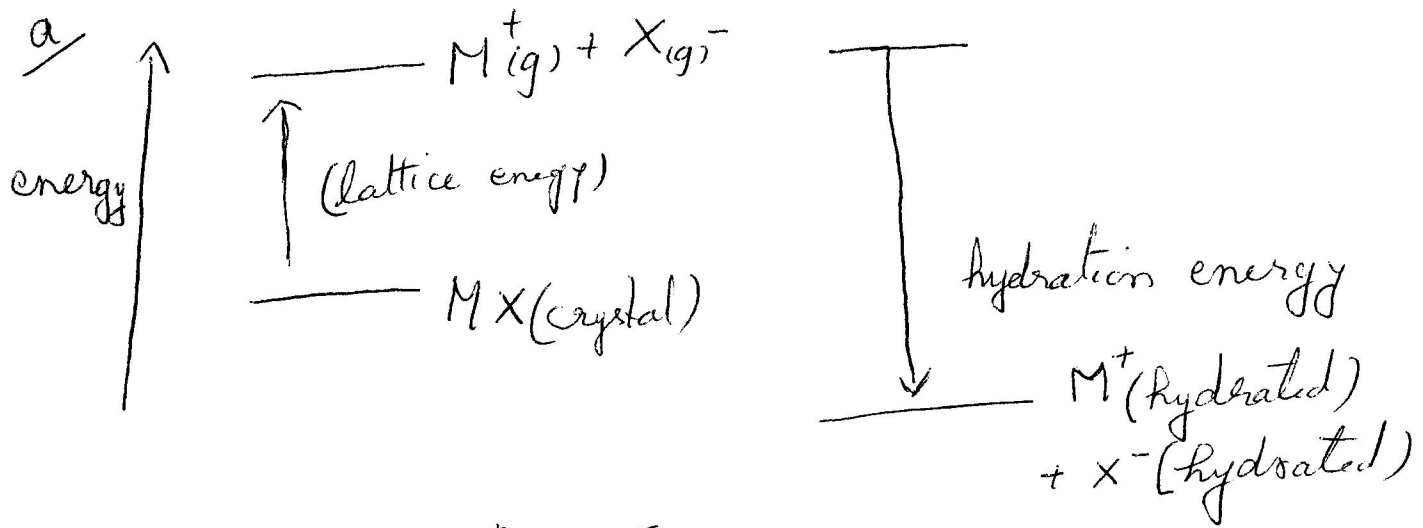 a/
M⁺(g) + X(g)⁻
energy
(lattice enegy)
MX(crystal)
hydration energy
M⁺(hydrated)
+ X⁻(hydrated)